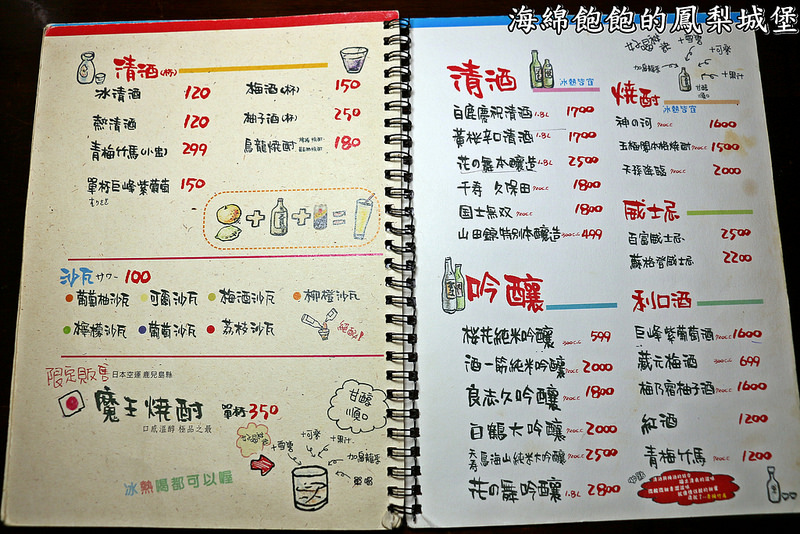 海綿飽飽的鳳梨城堡
清酒(杯)
冰清酒 120
熱清酒 120
青梅竹馬(小壺) 299
單杯巨峰紫葡萄 150
梅酒(杯) 150
柚子酒(杯) 250
烏龍燒酎 180
沙瓦 サワー 100
葡萄柚沙瓦 可爾沙瓦 梅酒沙瓦 柳橙沙瓦
檸檬沙瓦 葡萄沙瓦 荔枝沙瓦
限定販售 日本空運 鹿兒島縣
魔王燒酎 單杯350
口感溫醇 極品之最
甘醇順口
+雪碧
+可樂
+果汁
冰熱喝都可以喔
清酒
冰熱皆宜
白鹿慶祝清酒 1.8L 1700
黃桜辛口清酒 1.8L 1700
花の舞本釀造 1.8L 2500
千壽 久保田 720cc 1800
国士無双 720cc 1800
山田錦特別本釀造 300cc 499
吟釀
桜花純米吟釀 300cc 599
酒一筋純米吟釀 720cc 2000
良志久吟釀 720cc 1800
白鶴大吟釀 720cc 2000
2500
花の舞吟釀 1.8L 2800
+雪碧
+可樂
+果汁
燒酎
冰熱皆宜
神の河 720cc 1600
1500
天孫降臨 720cc 2000
威士忌
百富威士忌 2500
蘇格登威士忌 2200
利口酒
巨峰紫葡萄酒 720cc 1600
藏元梅酒 300cc 699
梅乃宿柚子酒 720cc 1600
紅酒 1200
青梅竹馬 720cc 1200